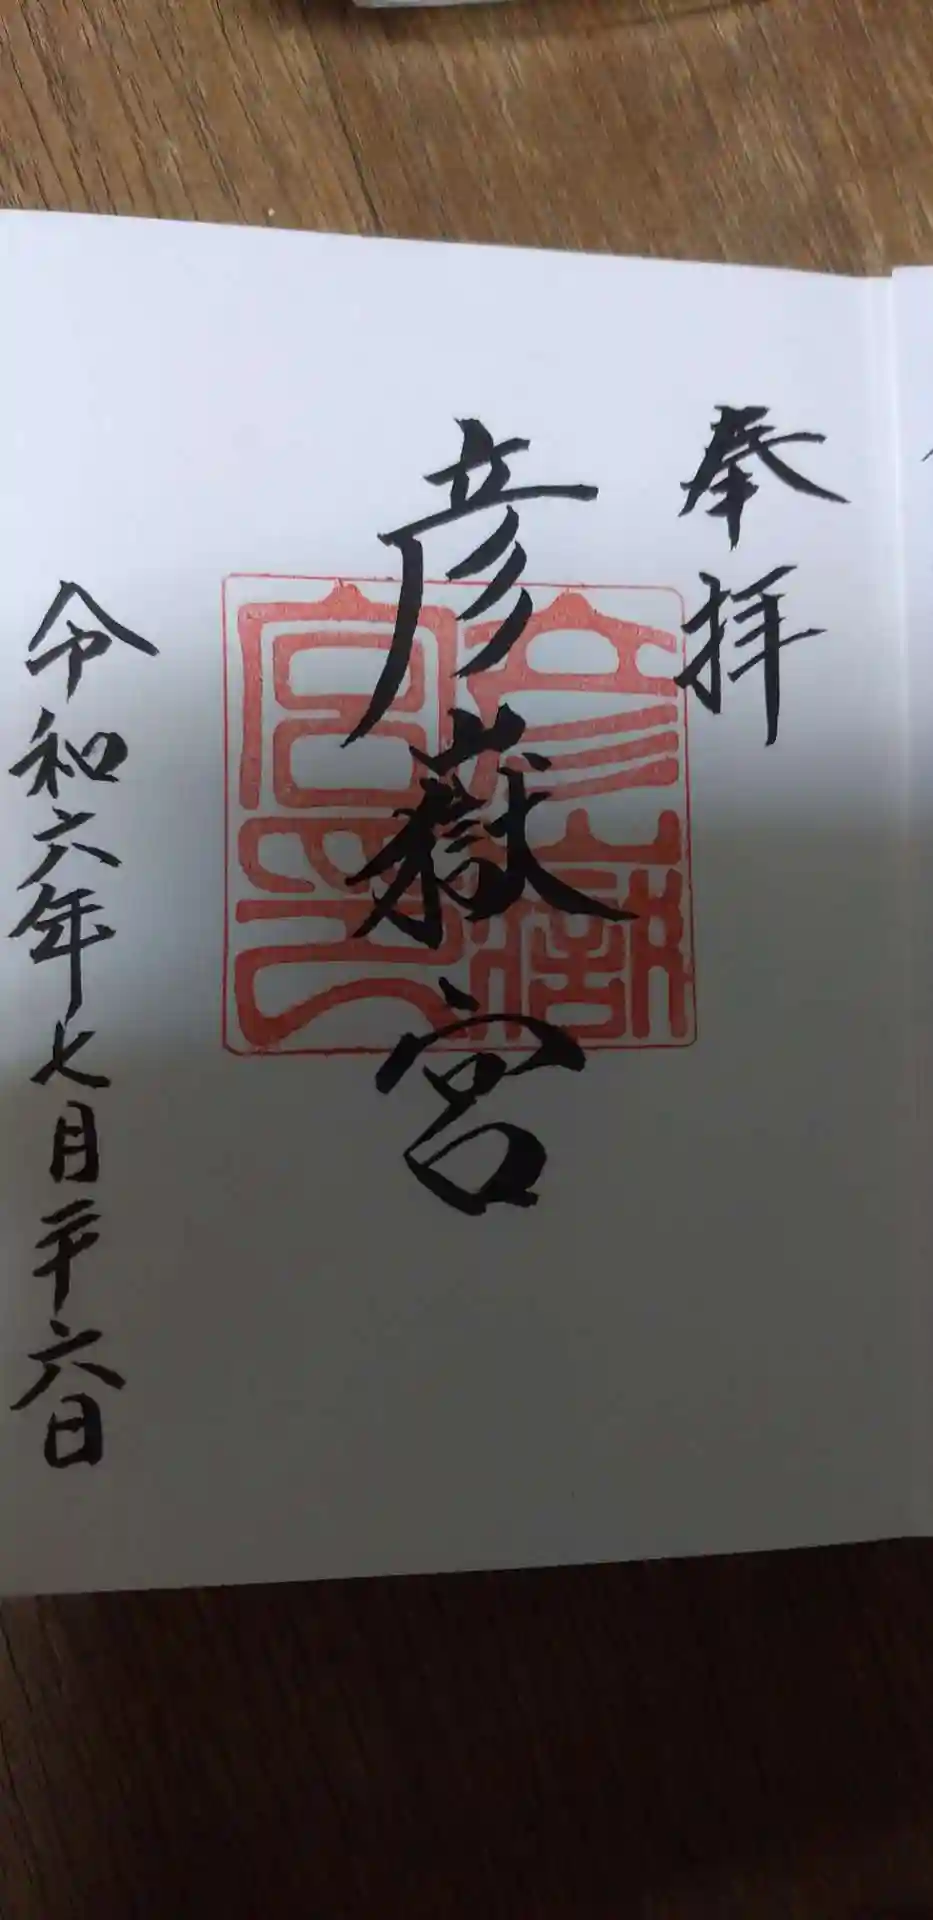 奉拝
彦嶽宮
令和六年七月二十六日
彦嶽宮印